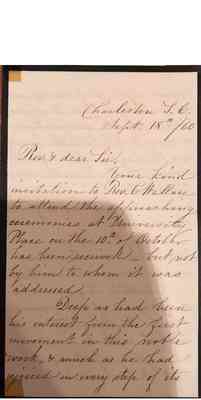 Charleston S. C.
Sept. 18th /60
Rev. & dear Sir,
Your kind
invitation to Rev. C Wallace
to attend the approaching
ceremonies at University
Place on the 10th of October
has been received – but not
by him to whom it was
addressed.
Deep as had been
his interest from the first
movement in this noble
work, & much as he had
rejoiced in every step of its